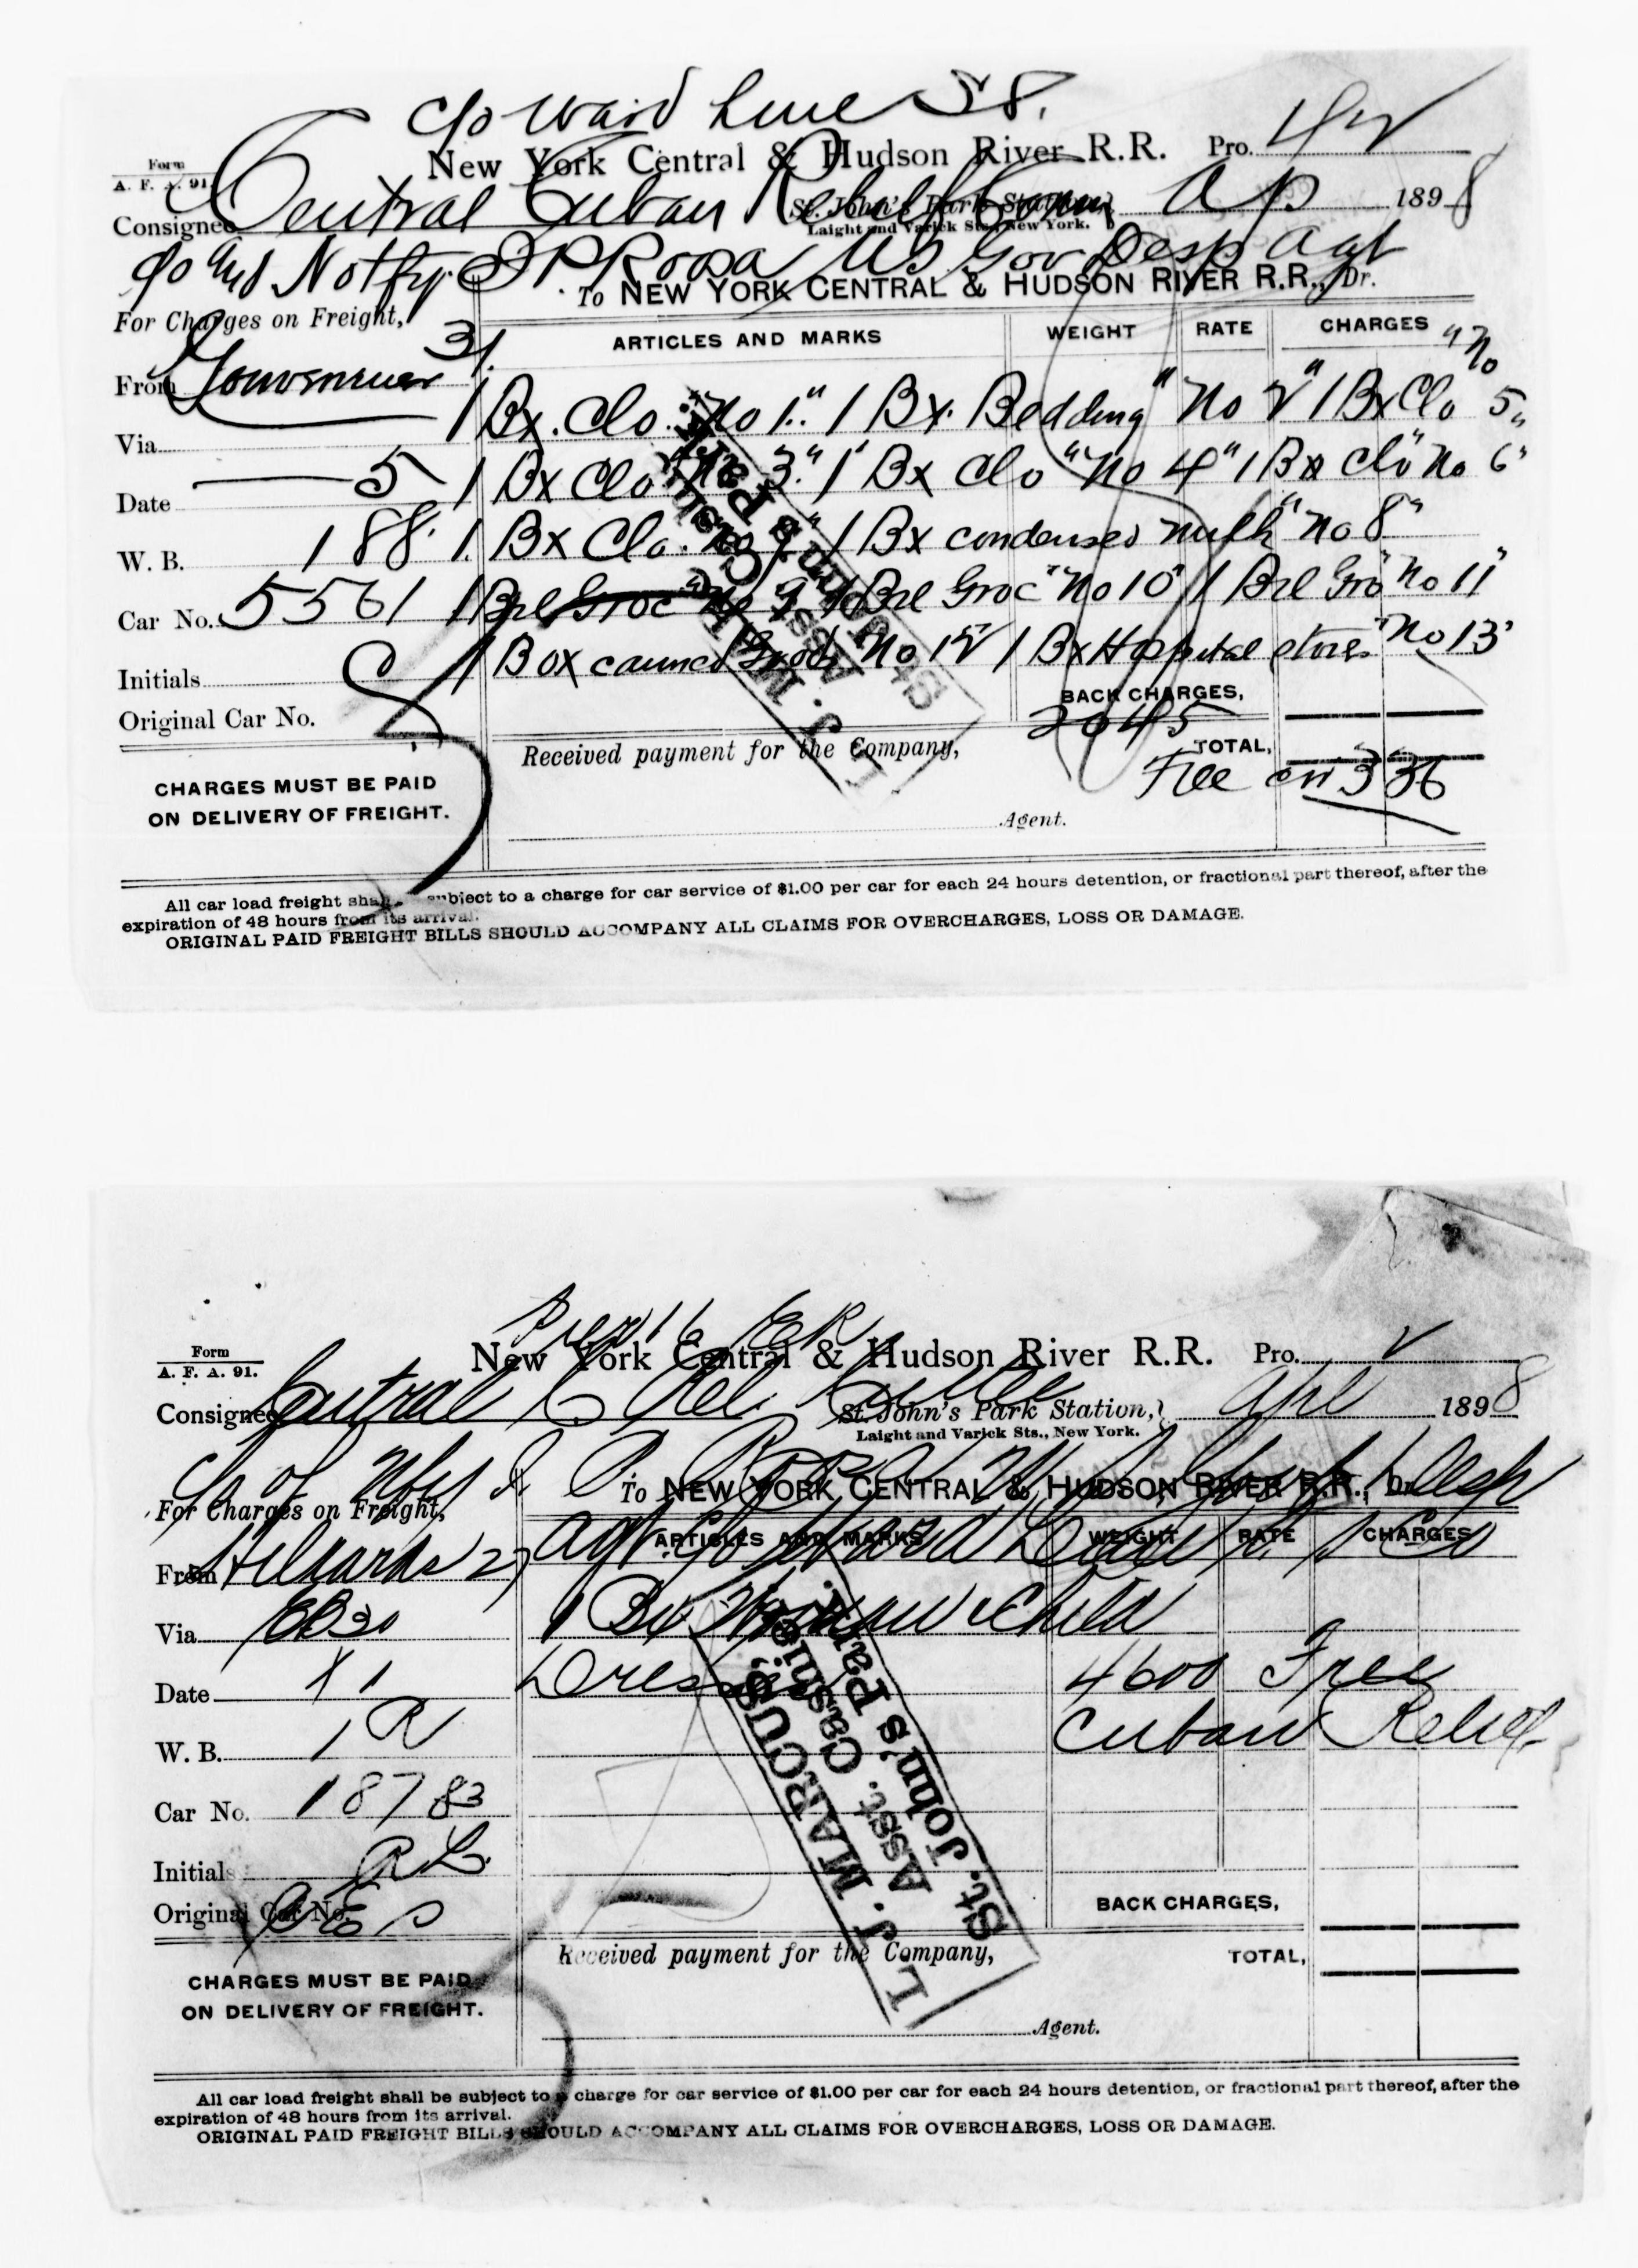 c/o Ward Line SS.
New York Central & Hudson River R.R. Pro.
Form
A. F. A. 91.
Consignee Central Cuban Relief Com Ap 1898
St. John's Park Station,
Laight and Varick Sts., New York.
c/o Notfy. I P Roosa US Gov Desp Agt
To NEW YORK CENTRAL & HUDSON RIVER R.R., Dr.
For Charges on Freight,
ARTICLES AND MARKS WEIGHT RATE CHARGES
From Gouverneur 31.
1 Bx. Clo. "No 1." 1 Bx. Bedding "No 2" 1 Bx Clo "No 5"
Via
Date 5 1 Bx Clo "No 3." 1 Bx Clo "No 4" 1 Bx Clo "No 6"
W. B. 188. 1. Bx Clo. "No 7" 1 Bx condensed milk "No 8"
Car No. 5561 1 Brl Groc "No 9" 1 Brl Groc "No 10" 1 Brl Gro "No 11"
Initials 1 Box canned Goods No 12 1 Bx Hospital stores "No 13"
Original Car No.
BACK CHARGES,
2045
TOTAL,
Free on 336
Received payment for the Company,
Agent.
CHARGES MUST BE PAID
ON DELIVERY OF FREIGHT.
L. J. MARCUSE,
Asst. Cash'r
St. John's Park.
All car load freight shall be subject to a charge for car service of $1.00 per car for each 24 hours detention, or fractional part thereof, after the
expiration of 48 hours from its arrival.
ORIGINAL PAID FREIGHT BILLS SHOULD ACCOMPANY ALL CLAIMS FOR OVERCHARGES, LOSS OR DAMAGE.
Pier 16 ER
New York Central & Hudson River R.R. Pro.
Form
A. F. A. 91.
Consignee Central C Rel. Apl 1898
St. John's Park Station,
Laight and Varick Sts., New York.
I P Roosa U S Desp
To NEW YORK CENTRAL & HUDSON RIVER R.R., Dr.
For Charges on Freight,
Agt c/o Ward Line S S Co
ARTICLES AND MARKS WEIGHT RATE CHARGES
From 27
1 Bx Woman & Child
Via
Dresses 4600 Free
Date
Cuban Relief
W. B.
Car No. 18783
Initials
Original Car No.
BACK CHARGES,
Received payment for the Company,
TOTAL,
Agent.
CHARGES MUST BE PAID
ON DELIVERY OF FREIGHT.
L. J. MARCUSE,
Asst. Cash'r
St. John's Park.
All car load freight shall be subject to a charge for car service of $1.00 per car for each 24 hours detention, or fractional part thereof, after the
expiration of 48 hours from its arrival.
ORIGINAL PAID FREIGHT BILLS SHOULD ACCOMPANY ALL CLAIMS FOR OVERCHARGES, LOSS OR DAMAGE.